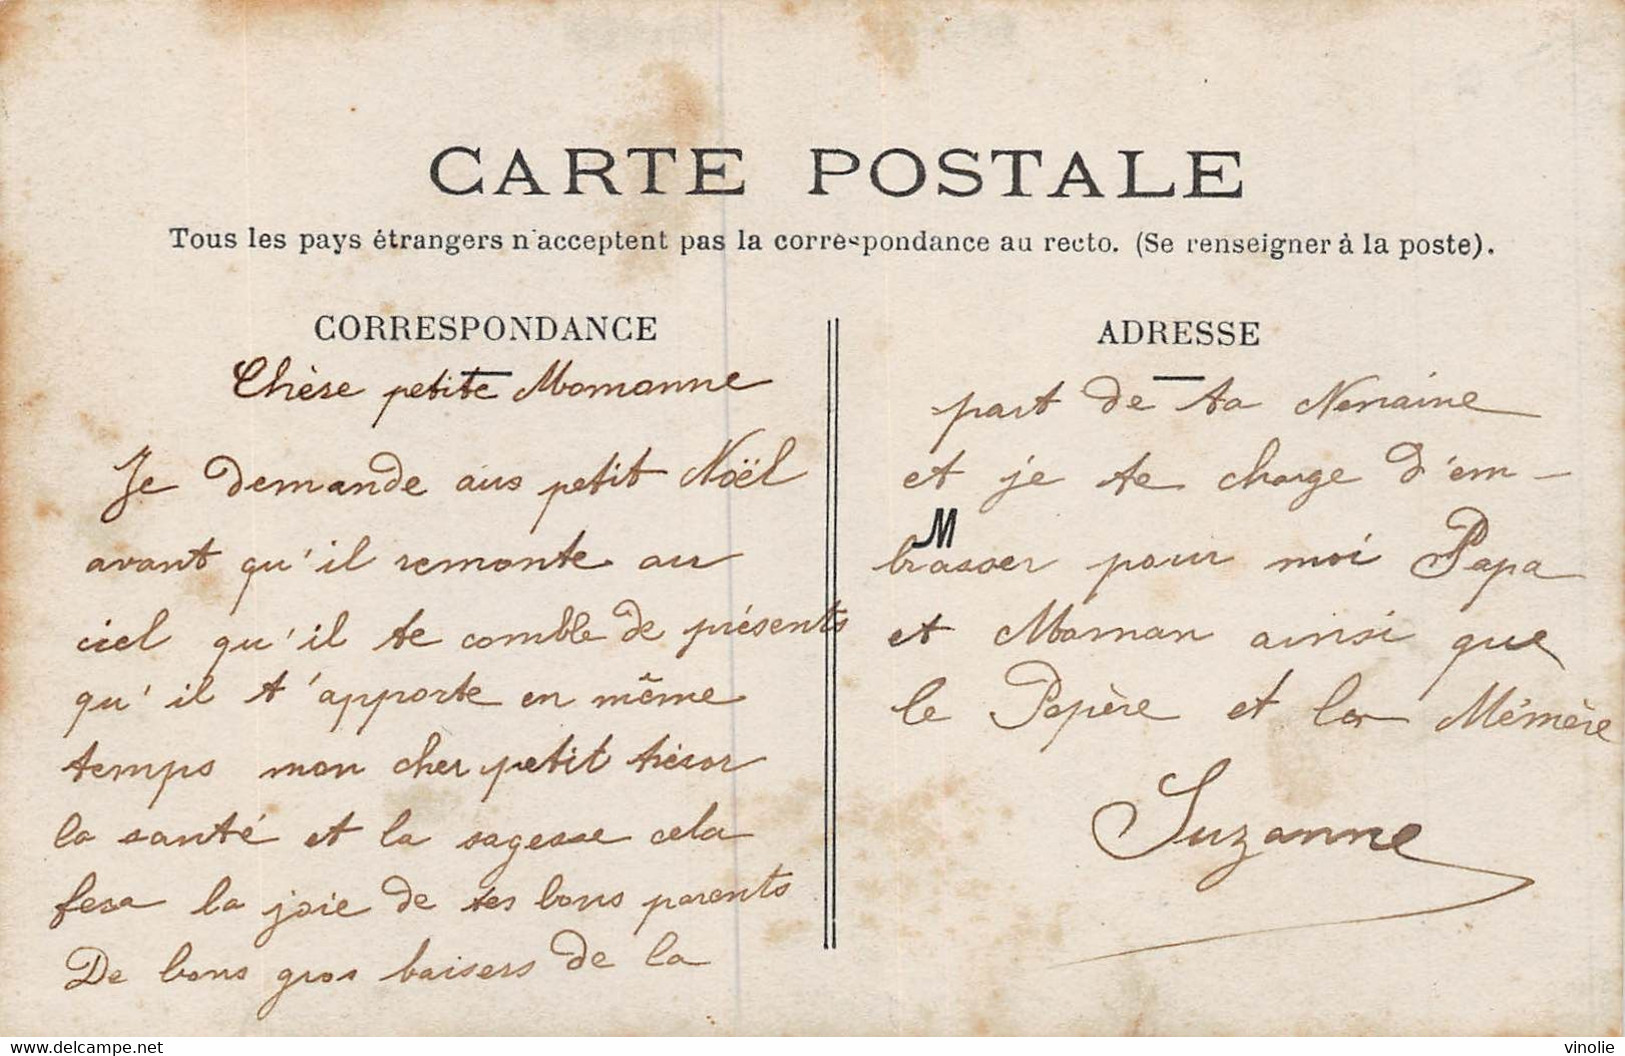 CARTE POSTALE
Tous les pays étrangers n'acceptent pas la correspondance au recto. (Se renseigner à la poste).
CORRESPONDANCE
Chère petite Momonne
Je demande aus petit Noël
avant qu'il remonte au
ciel qu'il te comble de présents
qu'il t'apporte en même
temps mon cher petit trésor
la santé et la sagesse cela
fera la joie de tes bons parents
De bons gros baisers de la
ADRESSE
part de ta Nenaine
et je te charge d'em-
M
brasser pour moi Papa
et Maman ainsi que
le Pepère et la Mémère
Suzanne
www.delcampe.net
vinolie